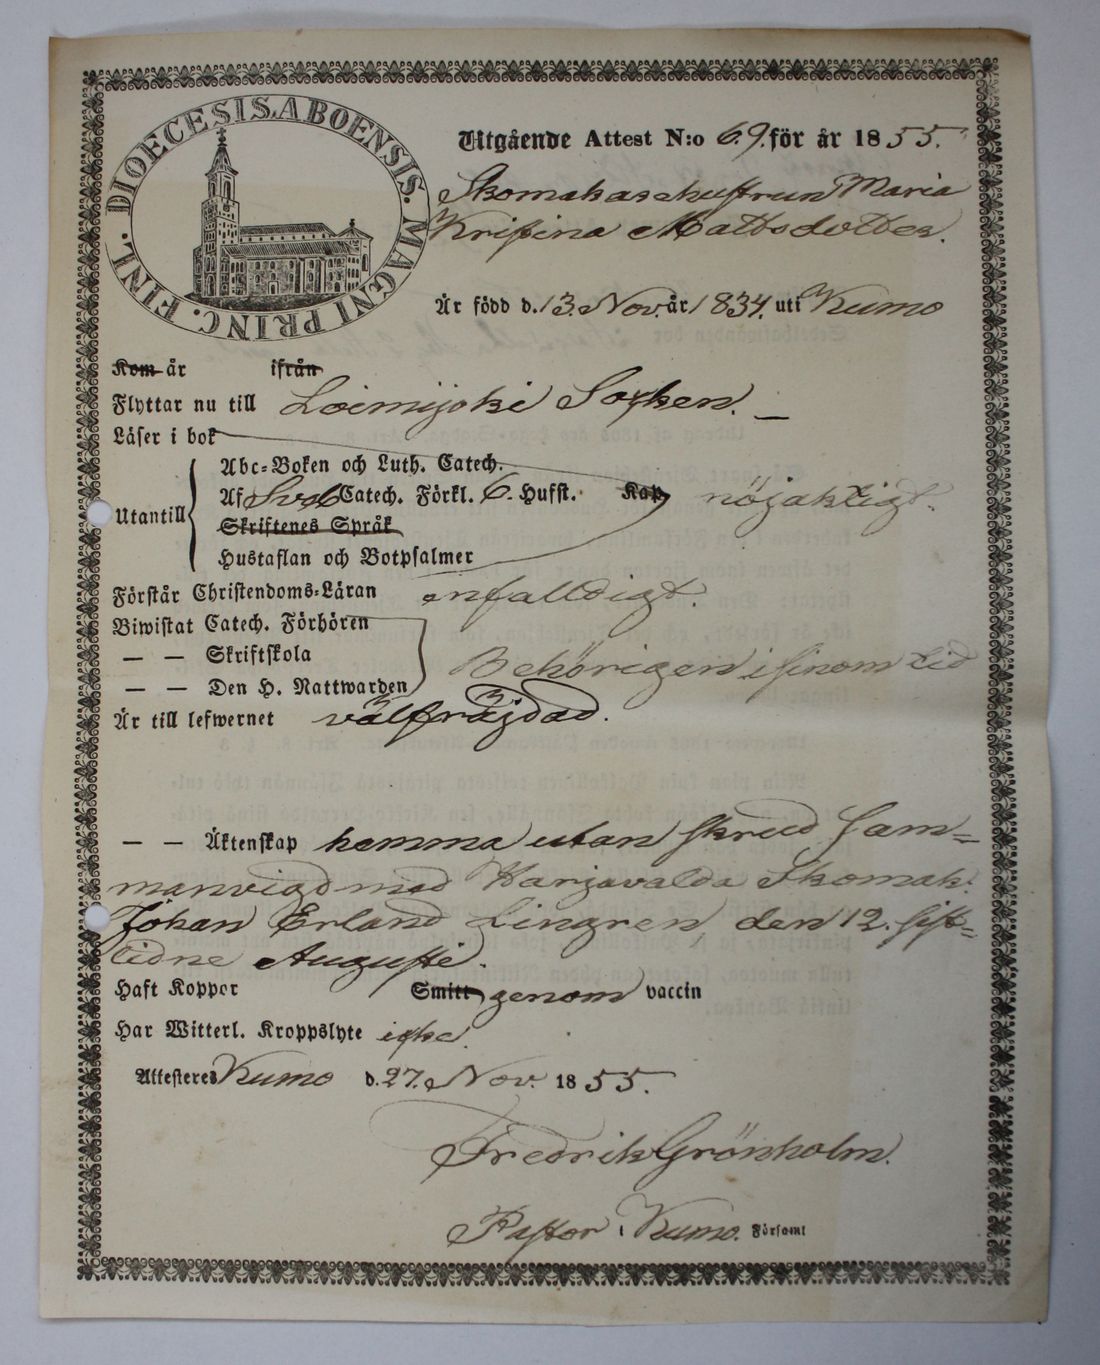 DIOECESIS ABOENSIS. MAGNI PRINC. FINL.
Utgående Attest N:o 69. för år 1855.
Skomakarehustrun Maria
Kristina Mattsdotter.
Är född d. 13. Nov. år 1834. uti Kumo
Kom år ifrån
Flyttar nu till Loimijoki Socken.
Läser i bok
Abc-Boken och Luth. Catech.
Utantill Af Sveb Catech. Förkl. 6. Hufst. Kap nöjaktigt.
Skriftenes Språk
Hustaflan och Botpsalmer
Förstår Christendoms-Läran enfalldigt.
Biwistat Catech. Förhören
— — Skriftskola Behörigen i sinom tid
— — Den H. Nattwarden
Är till lefwernet välfräjdad.
— — Äktenskap hemma utan skrud sam=
manvigd med Harjavalda Skomak.
Johan Erland Lingren, den 12. sist=
lidne Augusti.
Haft Koppor Smitt genom vaccin
Har Witterl. Kroppslyte icke.
Attesteres Kumo d. 27. Nov. 1855.
Fredrik Grönholm.
Pastor i Kumo. Förseml